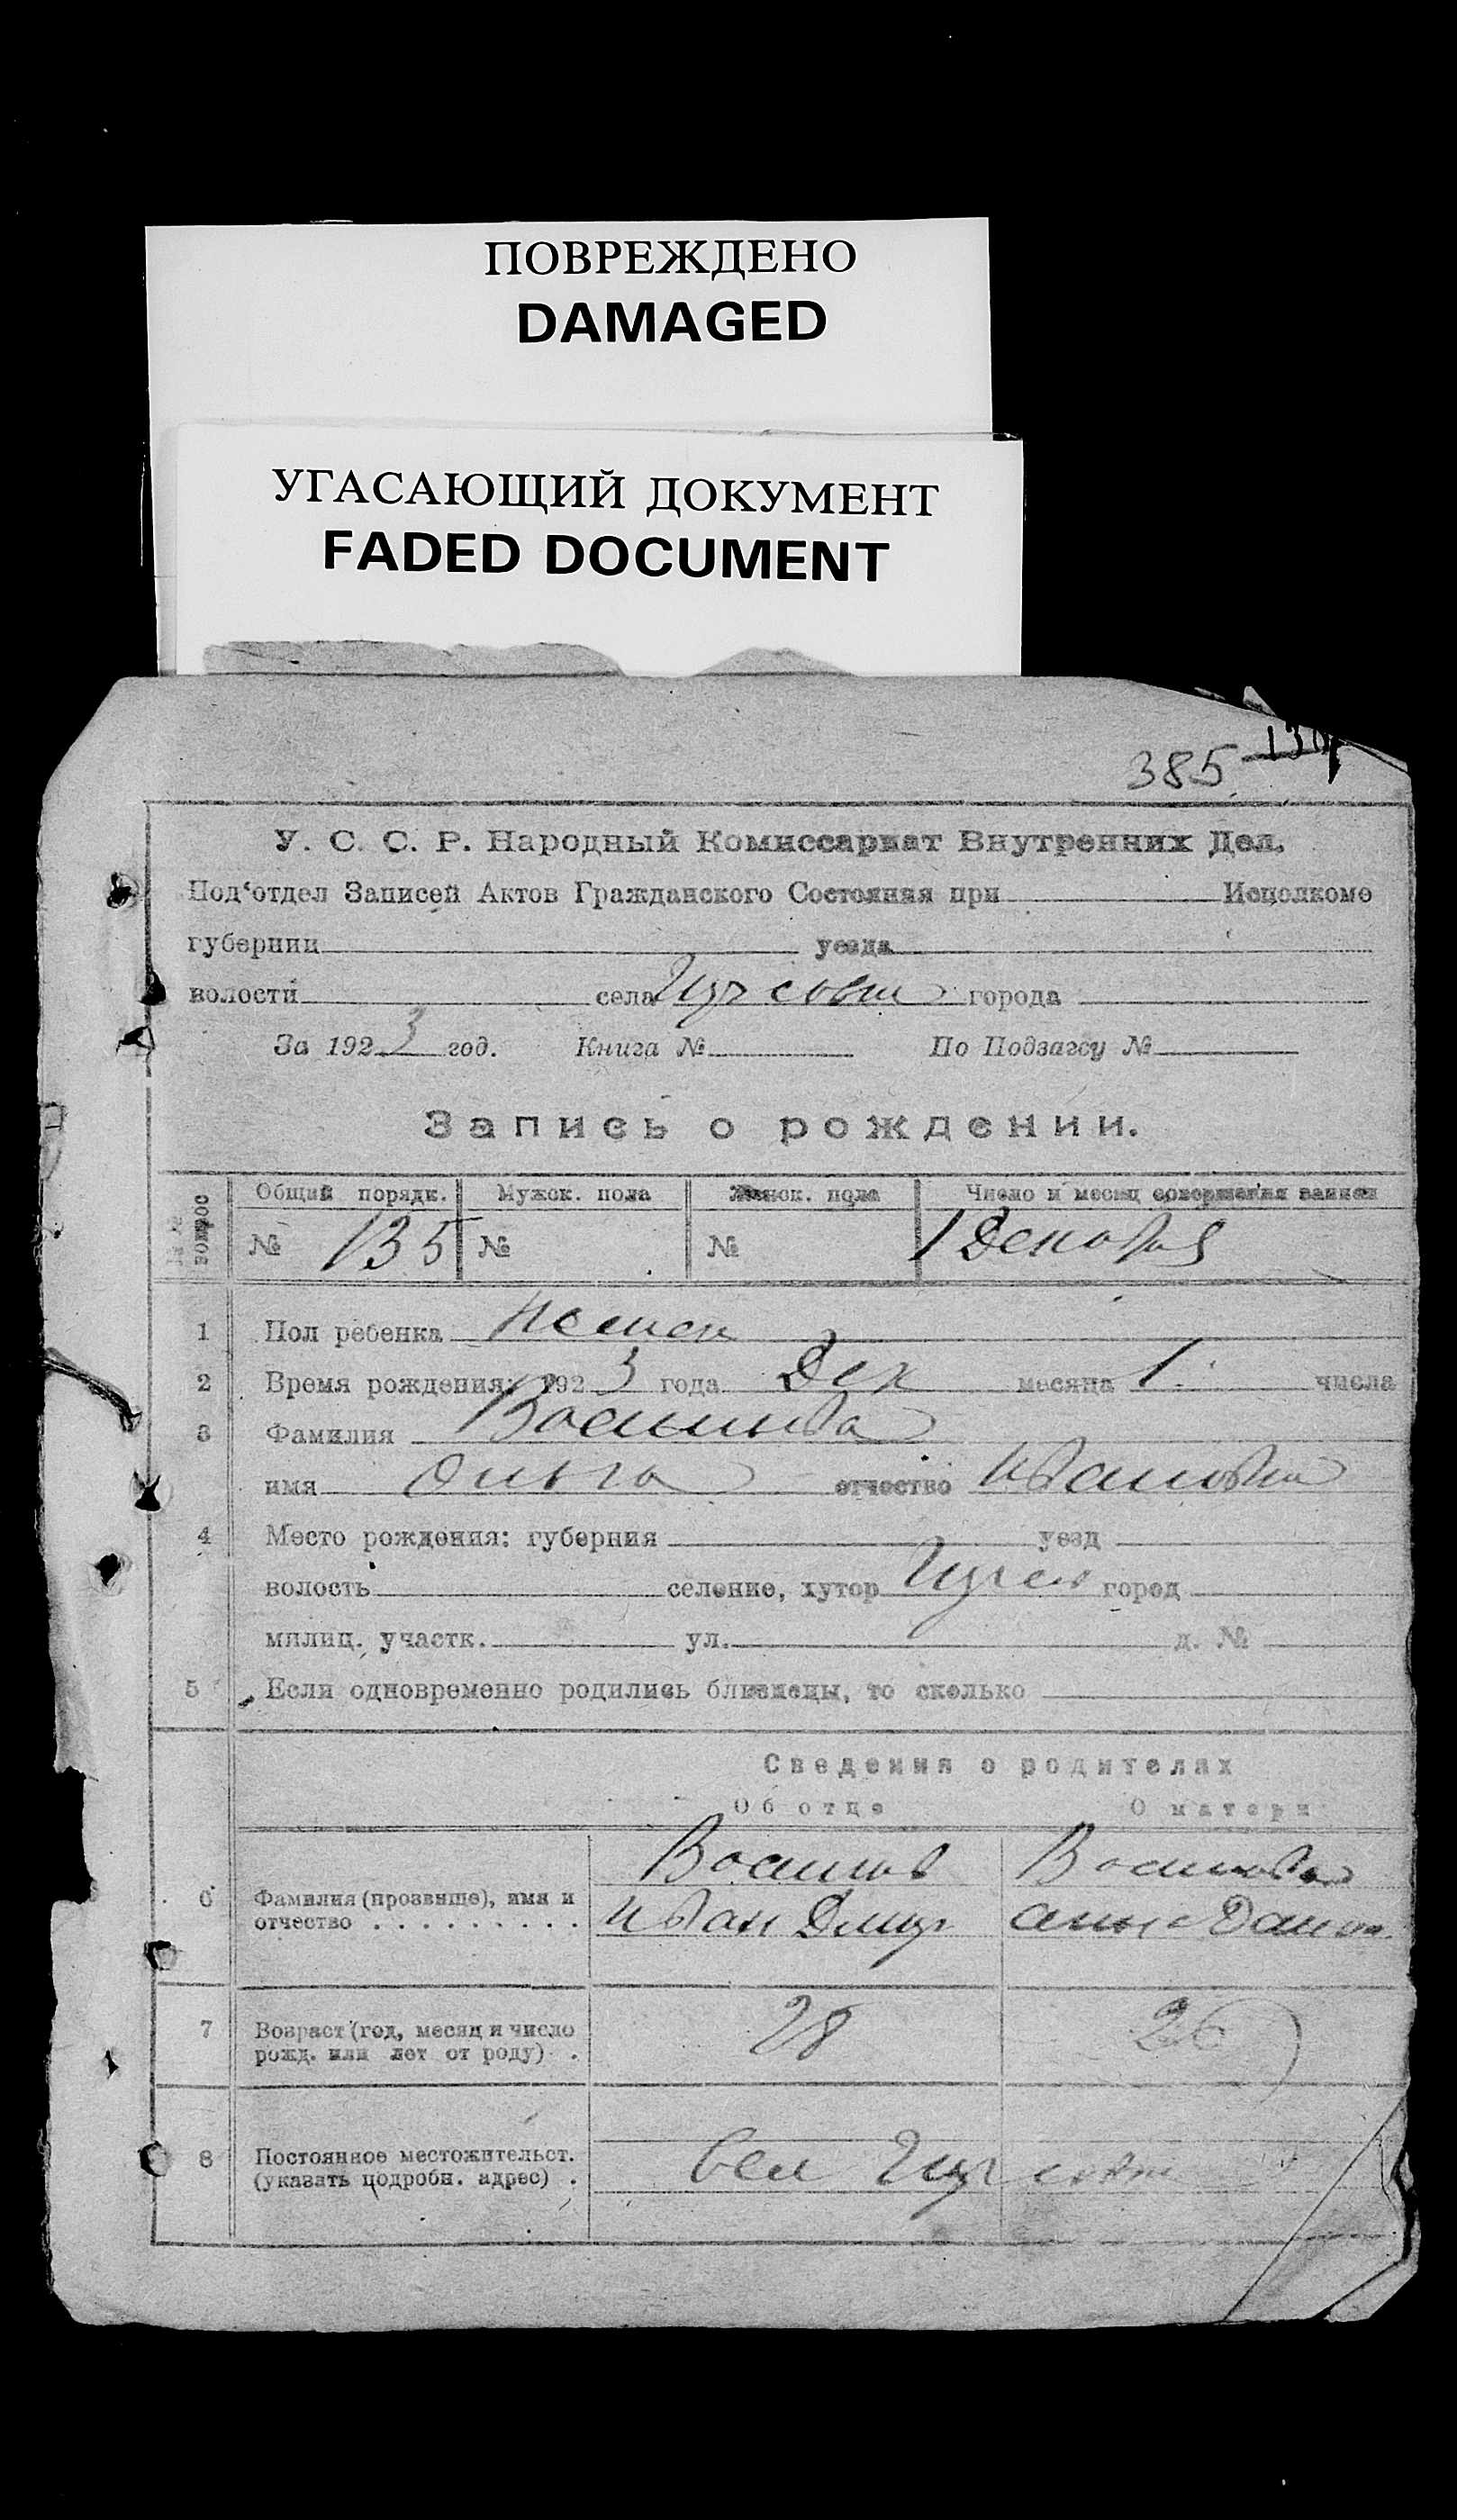 ПОВРЕЖДЕНО
DAMAGED
УГАСАЮЩИЙ ДОКУМЕНТ
FADED DOCUMENT
385
У. С. С. Р. Народный Комиссариат Внутренних Дел.
Под‘отдел Записей Актов Гражданского Состояния при Исполкоме
губернии уезда
волости села города
За 1923 год. Книга № По Подзагсу №
Запись о рождении.
вопрос Общий порядк. Мужск. пола Женск. пола Число и месяц совершения записи
№ 135 № № 1 Декабря
1 Пол ребенка женск
2 Время рождения: 1923 года Дек месяца 1. числа
3 Фамилия
имя Ольга отчество Ивановна
4 Место рождения: губерния уезд
волость селение, хутор город
милиц. участк. ул. д. №
5 Если одновременно родились близнецы, то сколько
Сведения о родителях
Об отце О матери
6 Фамилия (прозвище), имя и
отчество . . . . . . . . . Иван Дмит
7 Возраст (год, месяц и число
рожд. или лет от роду) . 28 26
8 Постоянное местожительст.
(указать подробн. адрес) .